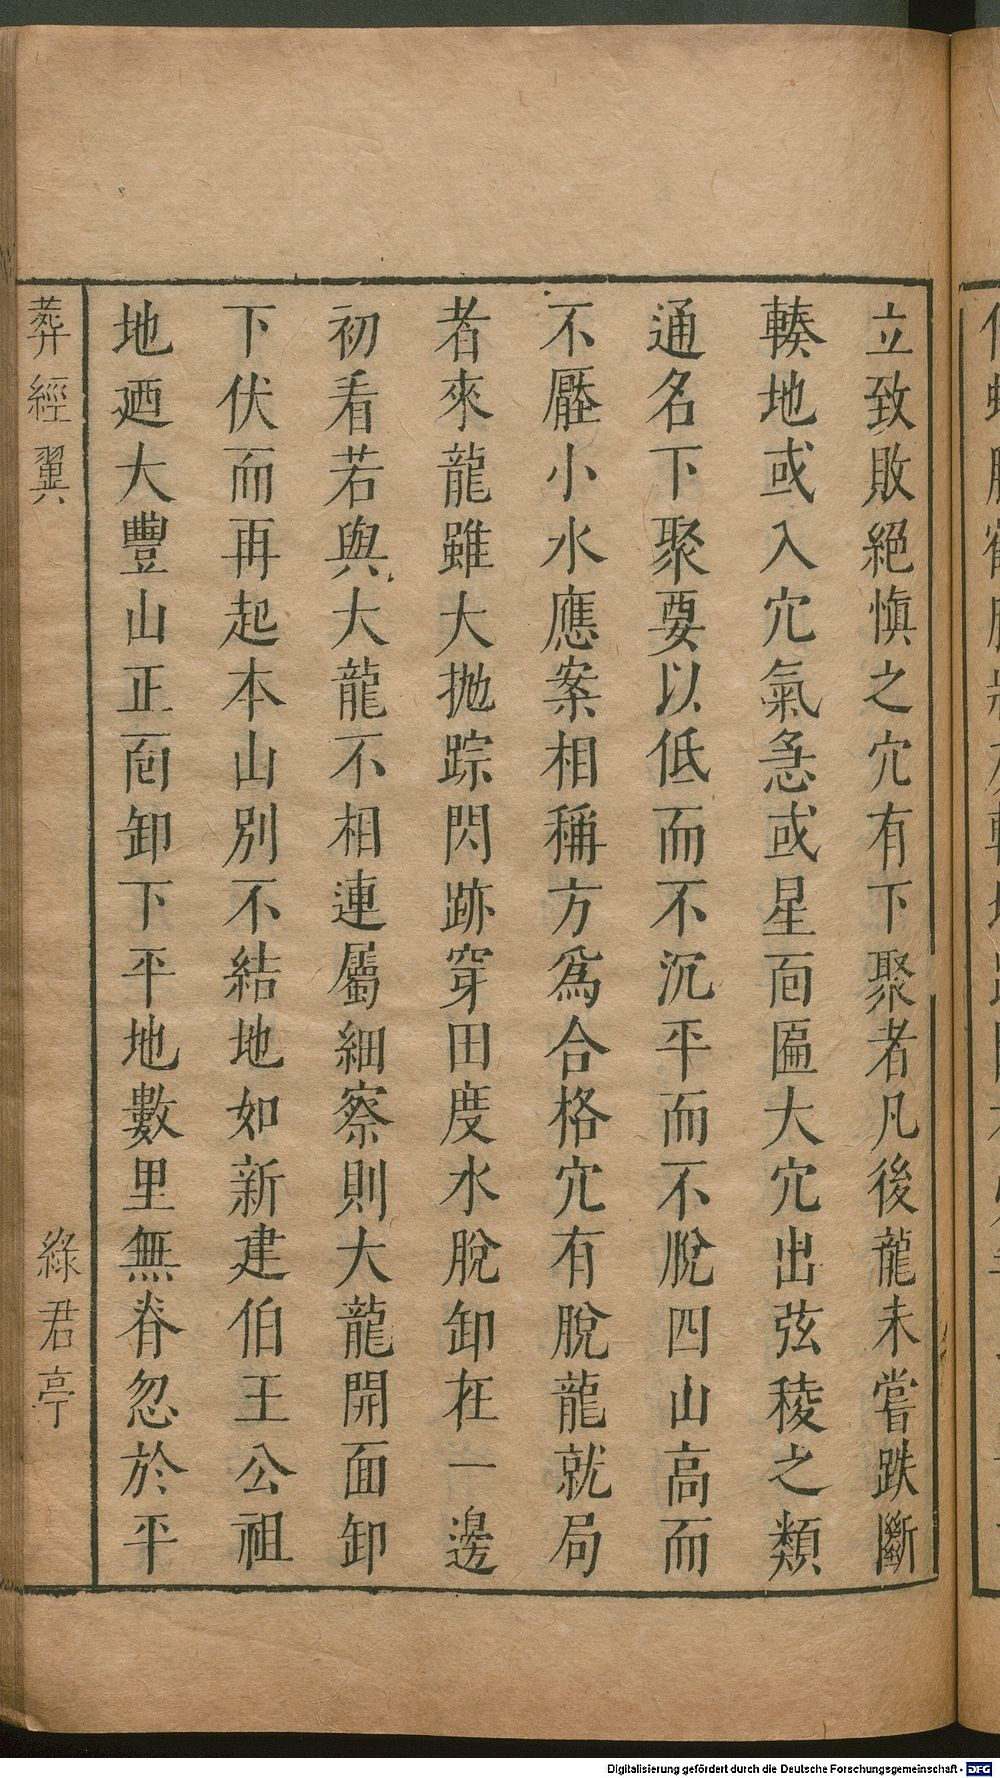 立致敗絕慎之穴有下聚者凡後龍未嘗跌斷
輳地或入穴氣急或星面匾大穴出弦稜之類
通名下聚要以低而不沉平而不脫四山高而
不壓小水應案相稱方爲合格穴有脫龍就局
者來龍雖大拋踪閃跡穿田度水脫卸在一邊
初看若與大龍不相連屬細察則大龍開面卸
下伏而再起本山別不結地如新建伯王公祖
地迺大豐山正面卸下平地數里無脊忽於平
葬經翼
綠君亭
Digitalisierung gefördert durch die Deutsche Forschungsgemeinschaft - DFG